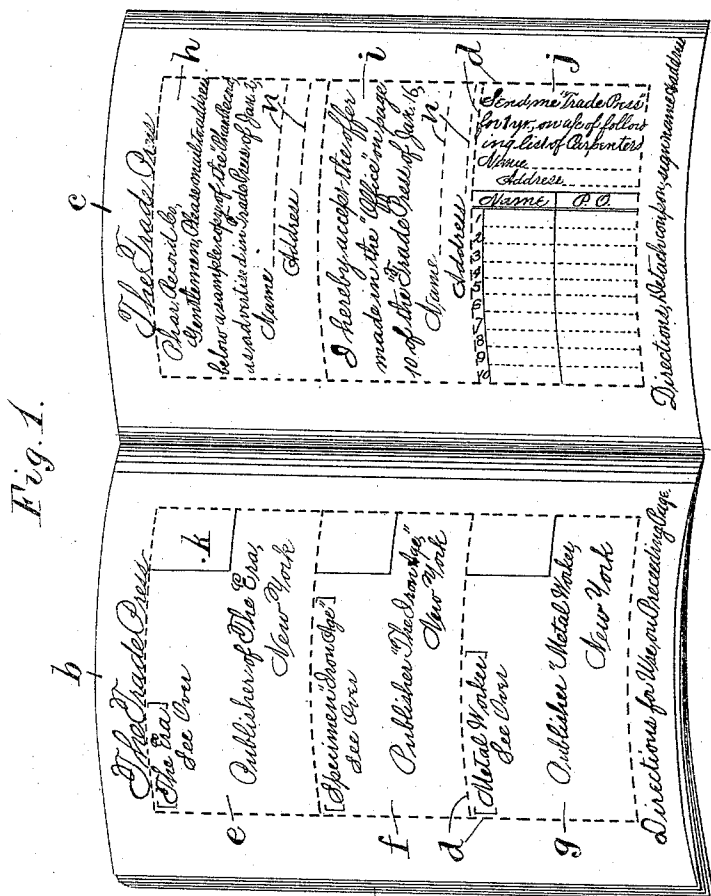 Fig. 1.
b
The Trade Press
[The Era]
See Over
k
e
Publisher of The Era,
New York
[Specimen "Iron Age"]
See Over
f
Publisher "The Iron Age,"
New York
d
[Metal Worker]
See Over
g
Publisher "Metal Worker,
New York
Directions for Use, on Preceeding Page.
c
The Trade Press
h
Phar. Record Co,
Gentlemen, Please mail to address
below a sample copy of the "Phar. Record
as advertised in Trade Press of Jan. 16,
Name
n
Address
i
I hereby accept the offer
made in the "Office" on page
10 of the "Trade Press of Jan. 16,
Name
n
Address
d
j
Send me "Trade Press"
for 1 yr, on of follow
ing list of Carpenters
Name
Address
Name P.O.
1
2
3
4
5
6
7
8
9
10
Directions, Detach coupon, sign name & address